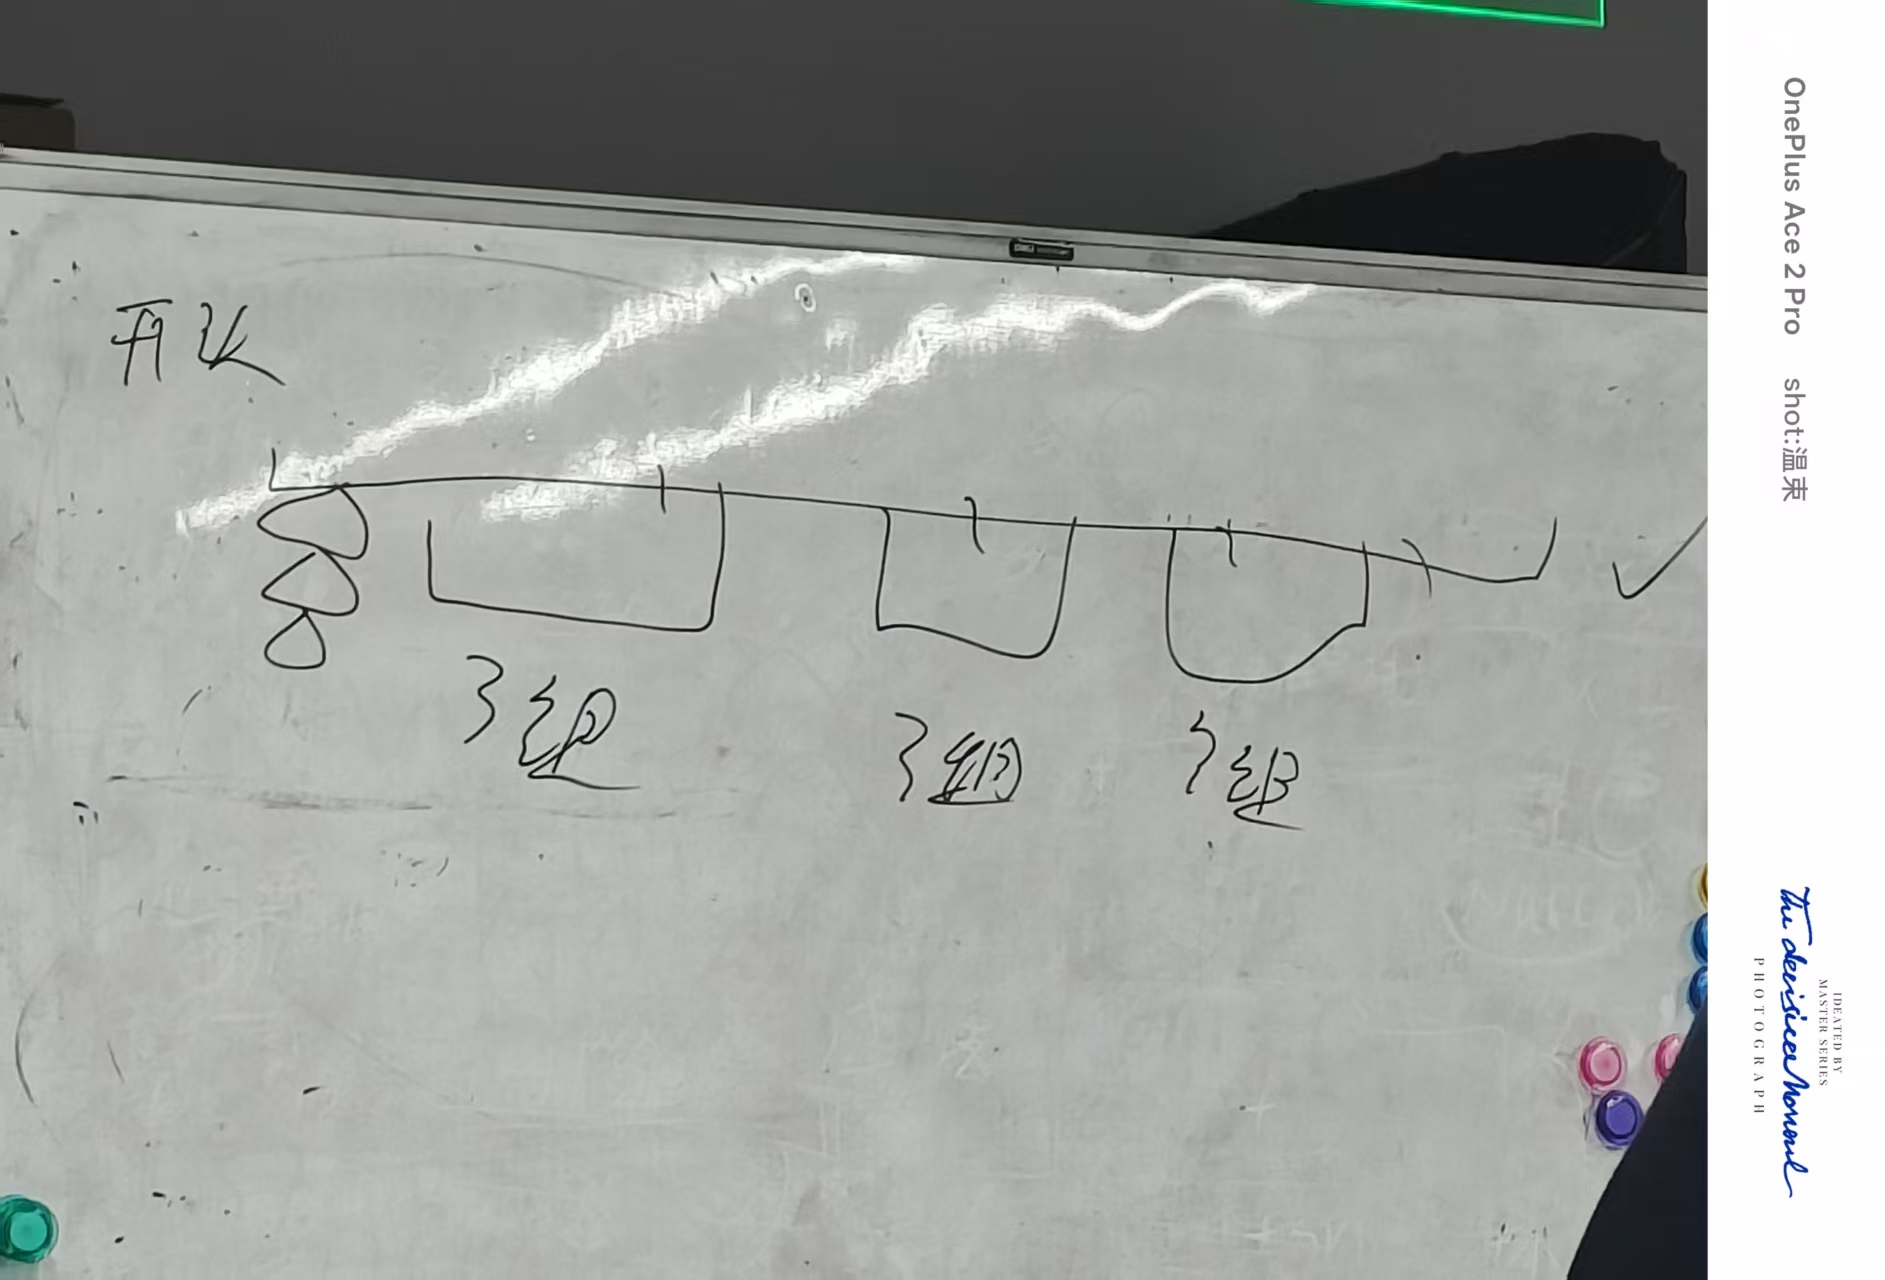 3组
3组
3组
OnePlus Ace 2 Pro shot:温束
IDEATED BY
MASTER SERIES
The decisive Moment
PHOTOGRAPH